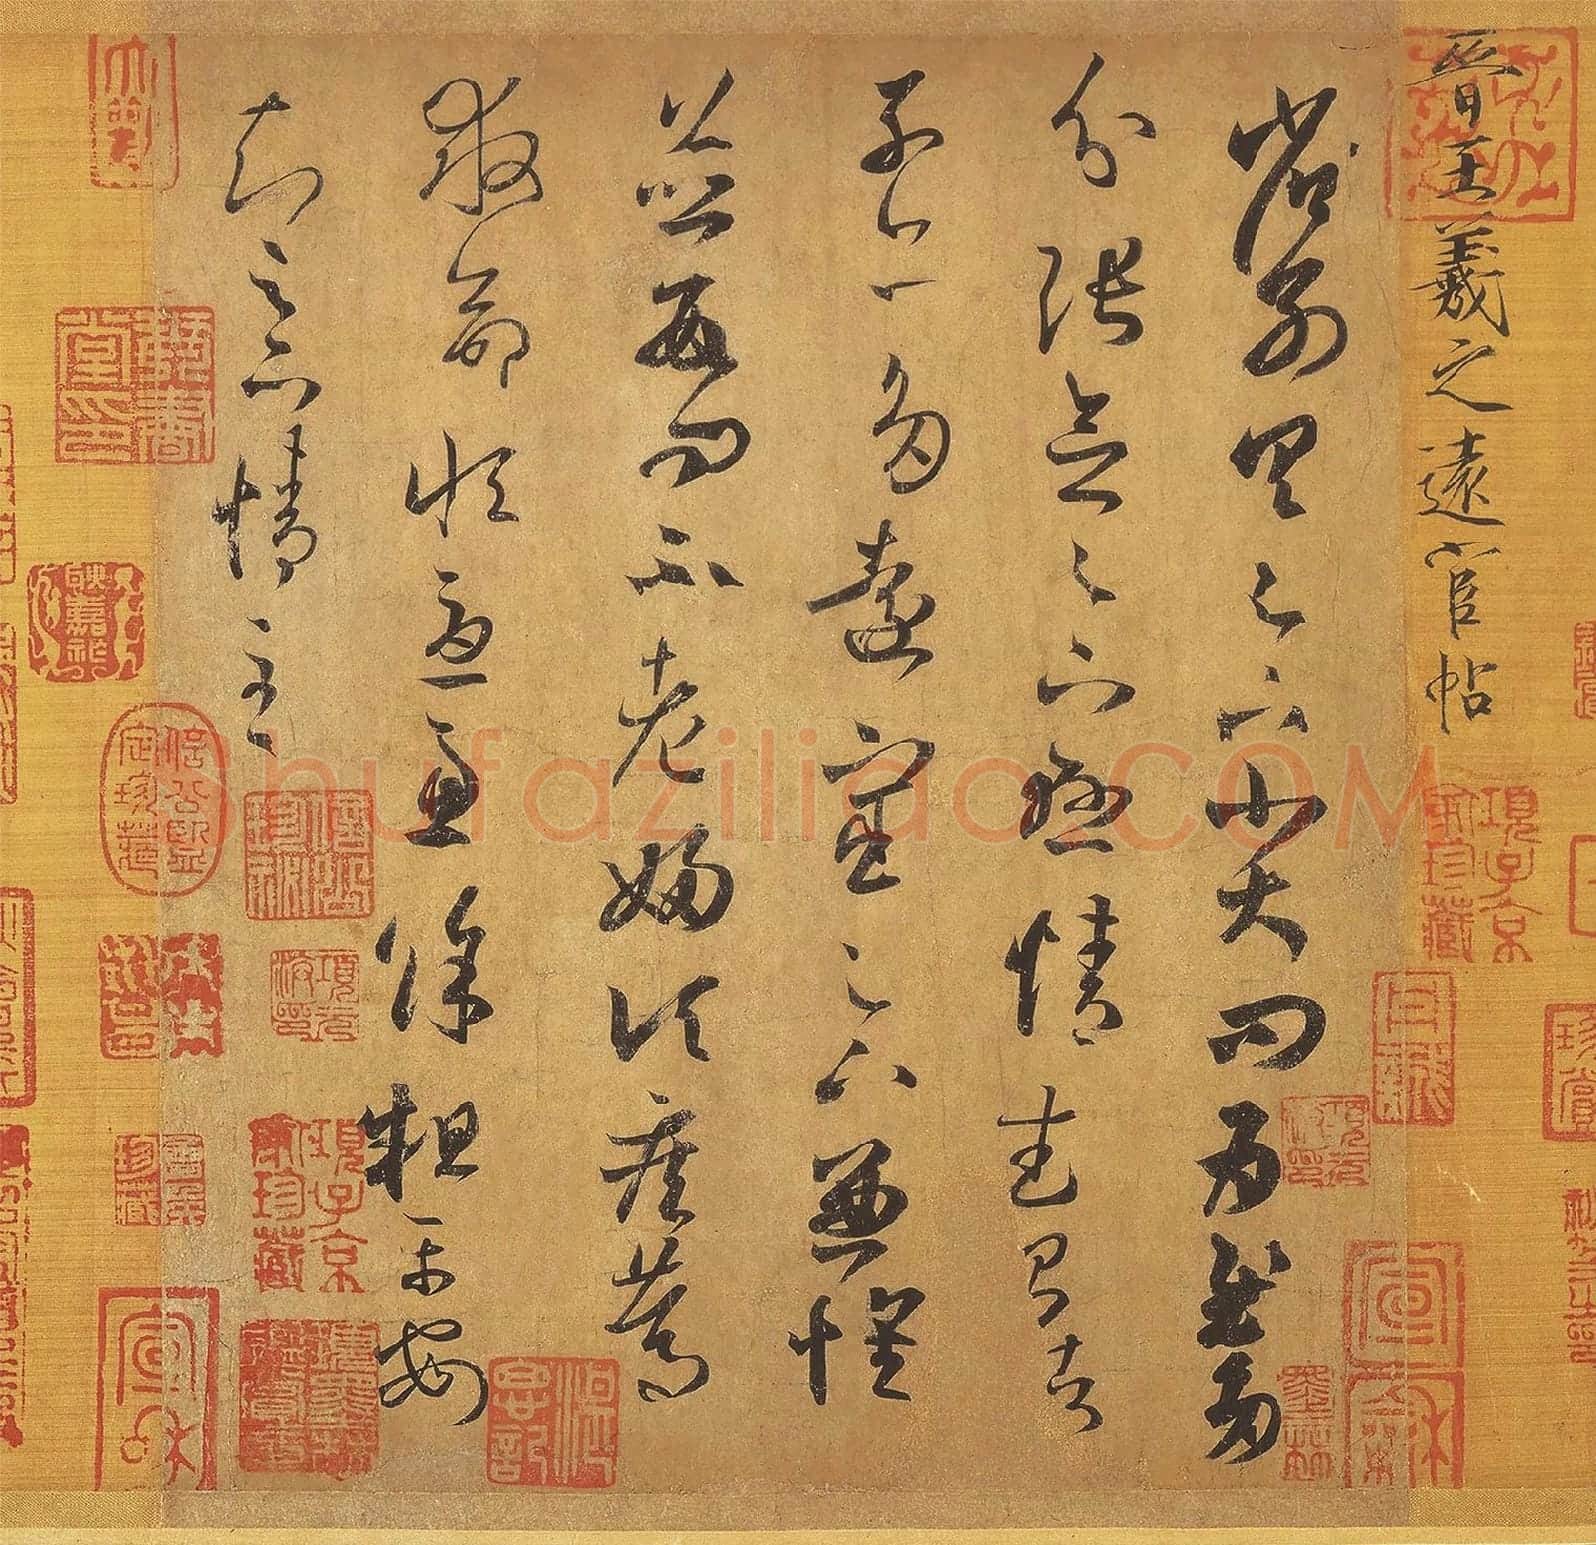 晉王羲之遠宦帖
省別具足下小大問為慰多
分張念足下懸情武昌諸
子亦多遠宦足下兼懷
並數問不老婦頃疾篤
救命恒憂慮餘粗平安
知足下情至
項子京家珍藏
項子京家珍藏
宣和
shufaziliao.COM